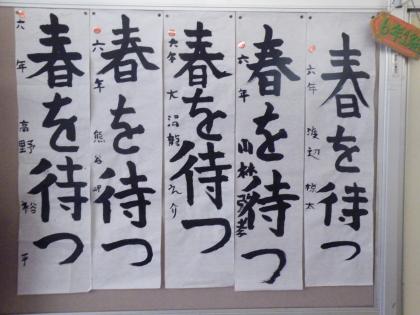 春を待つ
六年 渡辺 涼太
春を待つ
六年 小林 弥孝
春を待つ
六年 大沼龍之介
春を待つ
六年 熊谷
春を待つ
六年 高野 裕平